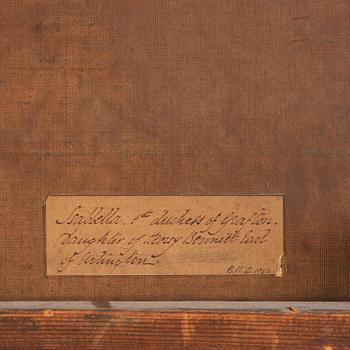 Isabbella. 1st duchess of Grafton.
Daughter of Henry Bennett Earl
of Arlington.